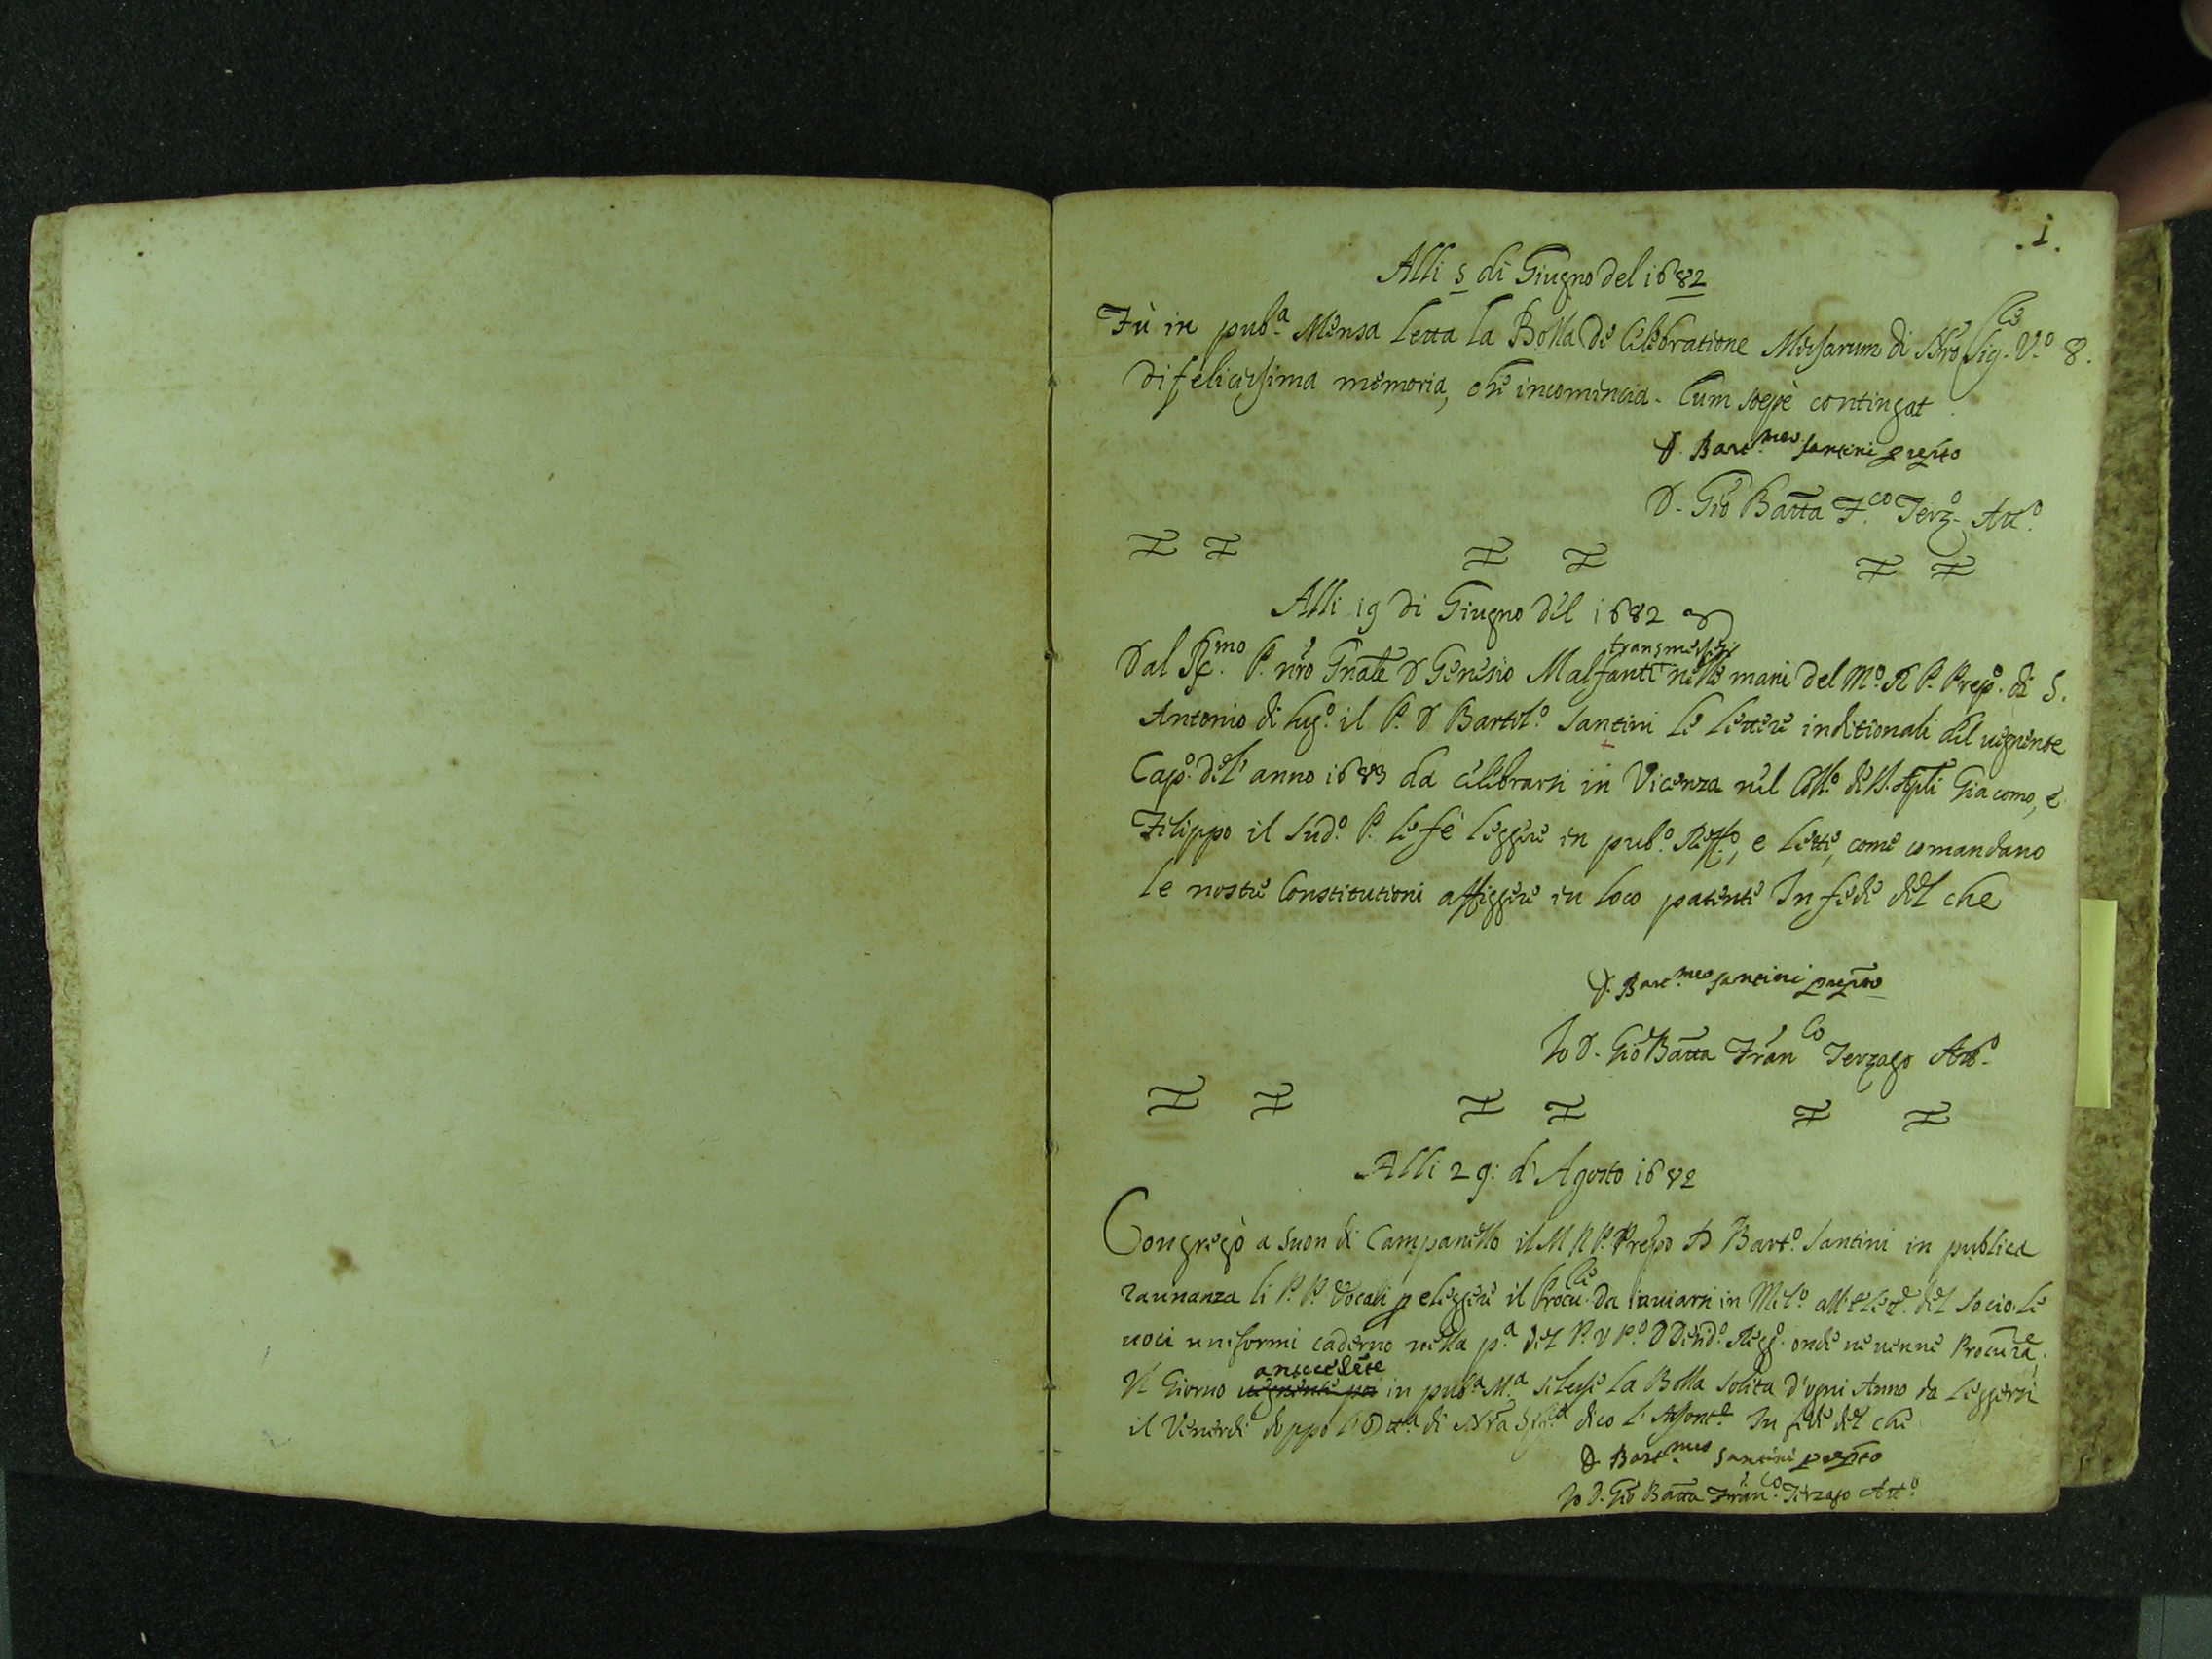 .1.
Alli 5 di Giugno del 1682
Fù in pub.a Mensa letta la Bolla de Celebratione Missarum di Nro Sig.le V.o 8.
di felicissima memoria, che incomincia. Cum soepè contingat
D. Bart.meo Santini prepto
D. Gio Batta F.co Terz.o Att.o
Alli 19 di Giugno del 1682
transmesse
Dal R.mo P. nro Gnale D Genesio Malfanti nelle mani del M.o R P. Prep.o di S.
Antonio di Lug.o il P. D Bartol.o Santini le lettere inditionali del uegnente
Cap.o del' anno 1683 da celebrarsi in Vicenza nel Coll.o de SS. Apli Giacomo, e
Filippo il Sud.o P. le fè leggere in pub.o Reff.o, e lette, come comandano
le nostre Constitutioni affiggere in loco patente In fede del che
D. Bart.meo Santini prepto
Io D. Gio Batta Fran.co Terzago Att.o
Alli 29: d'Agosto 1682
Congregò a suon di Campanello il M R P. Prepo D Bart.o Santini in publica
raunanza li P. P. Vocali p eleggere il Procu.le da inuiarsi in Mil.o all'elet.e del Socio. le
uoci uniformi caderno nella p.a del P. V P.o D Desid.o Regg. onde ne uenne Procurã.e
antecedẽte
Il Giorno uegnente poi in pub.a M.a si lesse la Bolla solita d'ogni Anno da leggersi
il Venerdi doppo l' di Nra Sig.ra dico l'Assont.e In fede del che
D Bart.meo Santini prepto
Io D. Gio Batta Fran.co Terzago Att.o